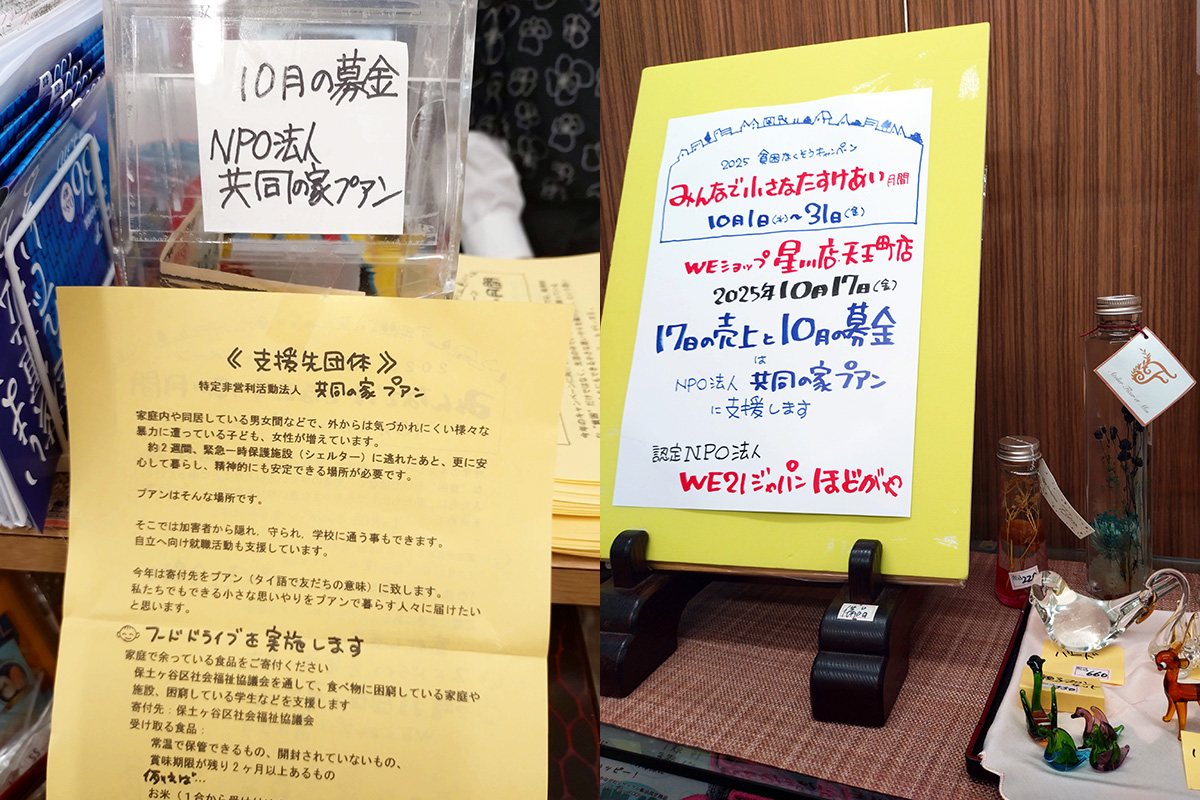 10月の募金
NPO法人
共同の家プアン
《支援先団体》
特定非営利活動法人 共同の家 プアン
家庭内や同居している男女間などで、外からは気づかれにくい様々な
暴力に遭っている子ども、女性が増えています。
約2週間、緊急一時保護施設（シェルター）に逃れたあと、更に安
心して暮らし、精神的にも安定できる場所が必要です。
プアンはそんな場所です。
そこでは加害者から隠れ、守られ、学校に通う事もできます。
自立へ向け就職活動も支援しています。
今年は寄付先をプアン（タイ語で友だちの意味）に致します。
私たちでもできる小さな思いやりをプアンで暮らす人々に届けたい
と思います。
フードドライブを実施します
家庭で余っている食品をご寄付ください
保土ヶ谷区社会福祉協議会を通して、食べ物に困窮している家庭や
施設、困窮している学生などを支援します
寄付先：保土ヶ谷区社会福祉協議会
受け取る食品：
常温で保管できるもの、開封されていないもの、
賞味期限が残り2ヶ月以上あるもの
例えば…
お米（1合から受け
2025 貧困なくそうキャンペーン
みんなで小さなたすけあい月間
10月1日(水)〜31日(金)
WEショップ 星川店・天王町店
2025年10月17日(金)
17日の売上と10月の募金
は
NPO法人 共同の家プアン
に支援します
認定NPO法人
WE21ジャパン ほどがや
備品
660